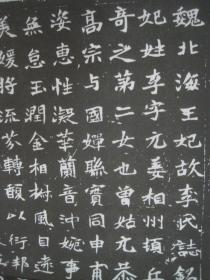 魏北海王妃故李氏誌銘
妃姓李字元姜相州頓丘
奇之第二女也曾姑元恭
高宗与國嬋聯寶同申甫
姿惠性凝華蘭音沖婉事
無怠玉潤金相樹風自遠
美媛將流芬轉馥以衍邦